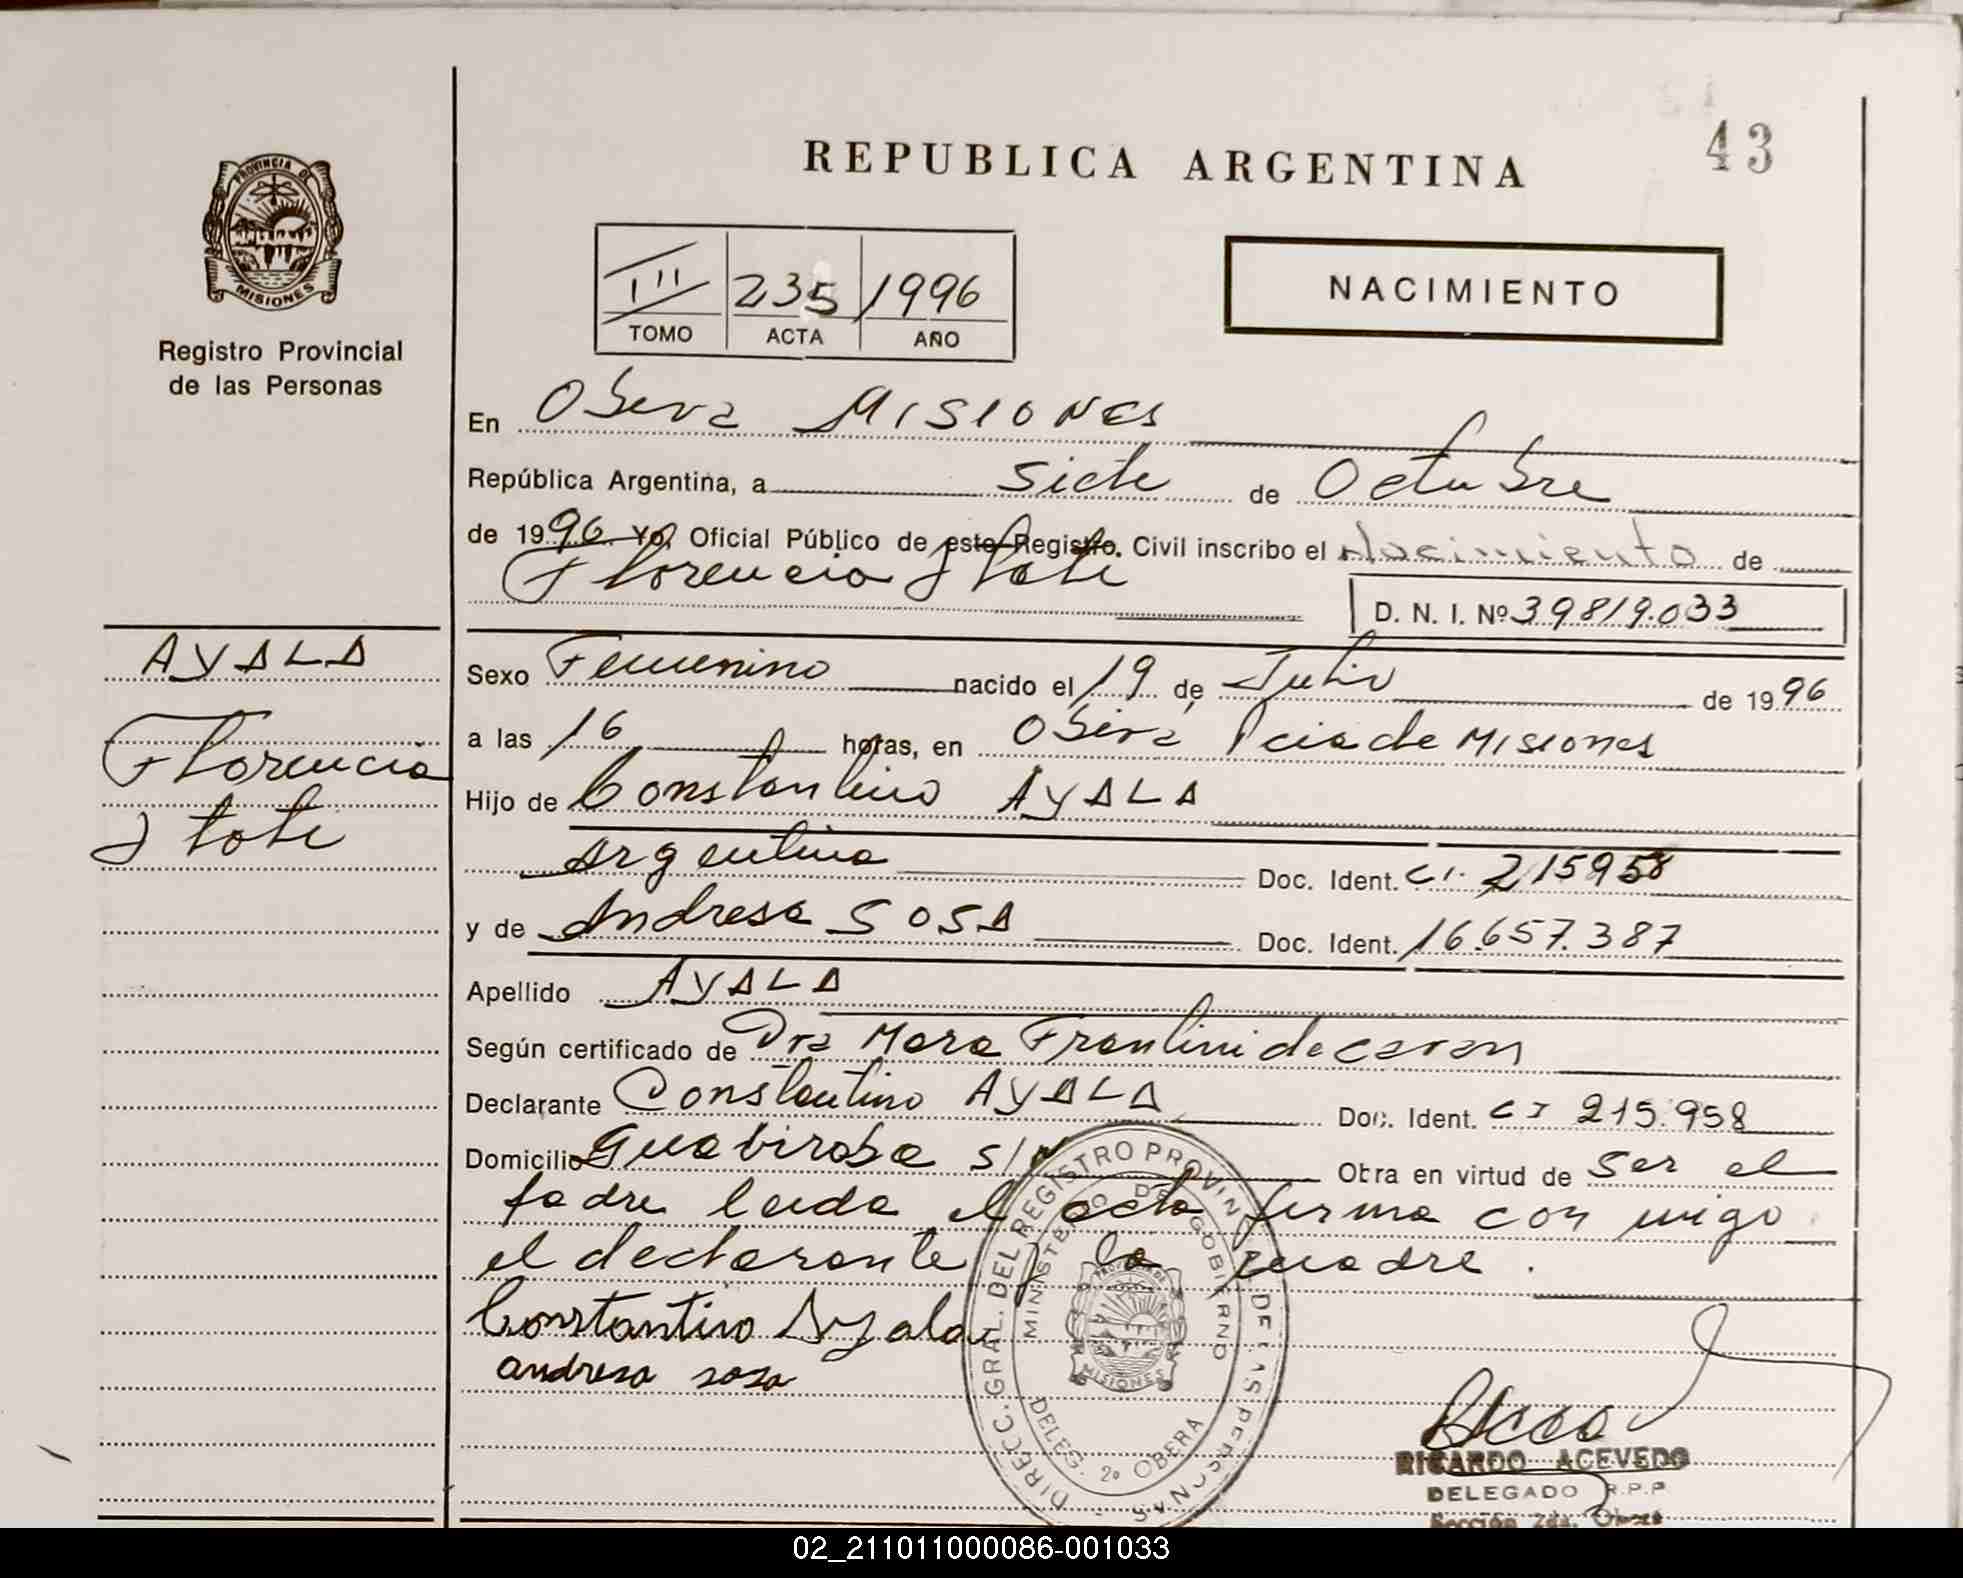 43
REPUBLICA ARGENTINA
PROVINCIA DE
MISIONES
Registro Provincial
de las Personas
III 235 1996
TOMO ACTA AÑO
NACIMIENTO
En Obera MISIONES
República Argentina, a siete de Octubre
de 1996 Yo, Oficial Público de este Registro Civil inscribo el Nacimiento de
Florencia Itati
D. N. I. Nº 39819.033
AYALA
Florencia
Itati
Sexo Femenino nacido el 19 de Julio de 1996
a las 16 horas, en Oberá Pcia de Misiones
Hijo de Constantino AYALA
Argentina Doc. Ident. CI. 215958
y de Andresa SOSA Doc. Ident. 16.657.387
Apellido AYALA
Según certificado de Dra Mara Frantini de
Declarante Constantino AYALA Doc. Ident. CI 215.958
Domicilio Guabiroba S/N Obra en virtud de ser el
padre leida el acta firma con migo
el declarante y la madre.
Constantino Ayala
andresa sosa
DIRECC. GRAL. DEL REGISTRO PROVINC. DE LAS PERSONAS
MINISTERIO DE GOBIERNO
PROVINCIA DE
MISIONES
DELEG. 2º OBERA
RICARDO ACEVEDO
DELEGADO R.P.P.
Sección 2da. Oberá
02_211011000086-001033